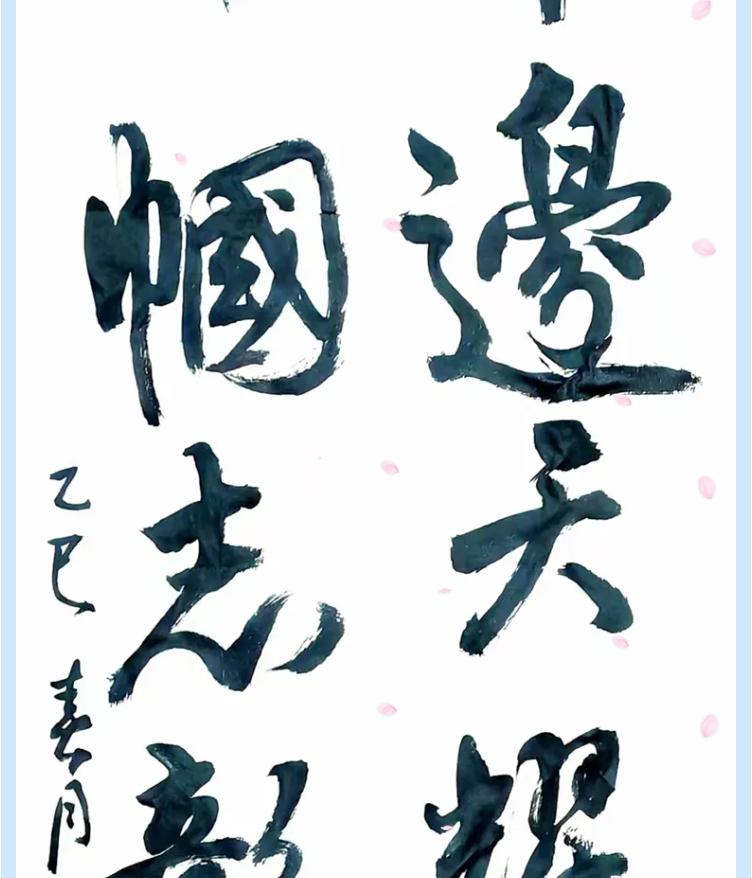 邊耀
幗志彰
乙巳春月